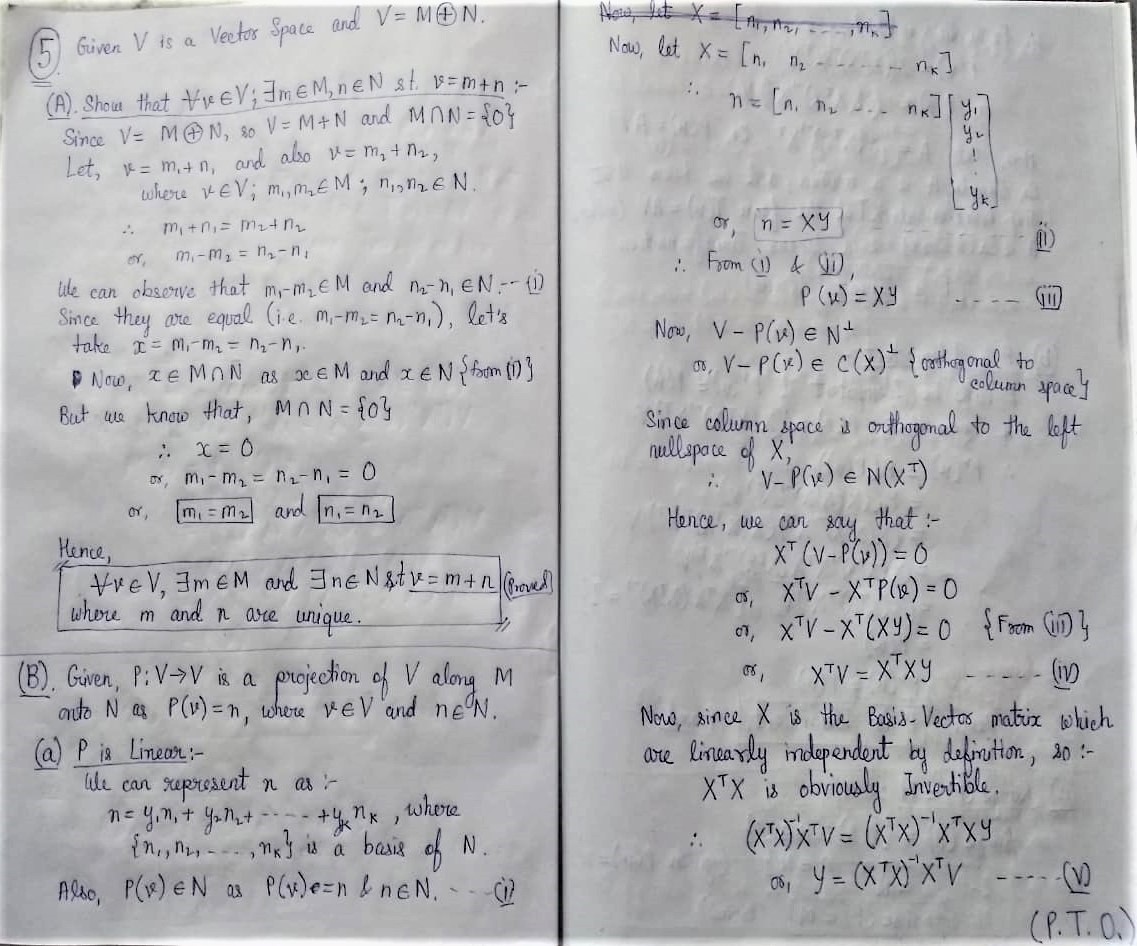 5 Given V is a Vector Space and V = M⊕N.
(A). Show that ∀v∈V; ∃m∈M, n∈N st. v=m+n :-
Since V= M⊕N, so V=M+N and M∩N={0}
Let, v = m₁+n₁ and also v=m₂+n₂,
where v∈V; m₁,m₂∈M ; n₁,n₂∈N.
∴ m₁+n₁= m₂+n₂
or, m₁-m₂ = n₂-n₁
We can observe that m₁-m₂∈M and n₂-n₁∈N.--(i)
Since they are equal (i.e. m₁-m₂= n₂-n₁), let's
take x= m₁-m₂ = n₂-n₁.
Now, x∈M∩N as x∈M and x∈N {from (i)}
But we know that, M∩N = {0}
∴ x = 0
or, m₁-m₂ = n₂-n₁ = 0
or, m₁=m₂ and n₁=n₂
Hence,
∀v∈V, ∃m∈M and ∃n∈N st v=m+n (Proved)
where m and n are unique.
(B). Given, P:V→V is a projection of V along M
onto N as P(v)=n, where v∈V and n∈N.
(a) P is Linear:-
We can represent n as :-
n= y₁n₁+ y₂n₂+ ------ +yₖnₖ , where
{n₁,n₂,----,nₖ} is a basis of N.
Also, P(v)∈N as P(v)=n & n∈N. ----(i)
Now, let X = [n₁,n₂, ----,nₖ]
Now, let X = [n₁ n₂ ------- nₖ]
∴ n = [n₁ n₂ --- nₖ] [y₁
y₂
⋮
yₖ]
or, n = XY ------ (ii)
∴ From (i) & (ii),
P(v)=XY ----- (iii)
Now, V-P(v) ∈ N⊥
or, V-P(v) ∈ C(X)⊥ {orthogonal to
column space}
Since column space is orthogonal to the left
nullspace of X,
∴ V-P(v) ∈ N(Xᵀ)
Hence, we can say that :-
Xᵀ(V-P(v)) = 0
or, XᵀV - XᵀP(v) = 0
or, XᵀV - Xᵀ(XY) = 0 {From (iii)}
or, XᵀV = XᵀXY ------ (iv)
Now, since X is the Basis-Vector matrix which
are linearly independent by definition, so :-
XᵀX is obviously Invertible.
∴ (XᵀX)⁻¹XᵀV = (XᵀX)⁻¹XᵀXY
or, Y = (XᵀX)⁻¹XᵀV ----- (v)
(P.T.O.)